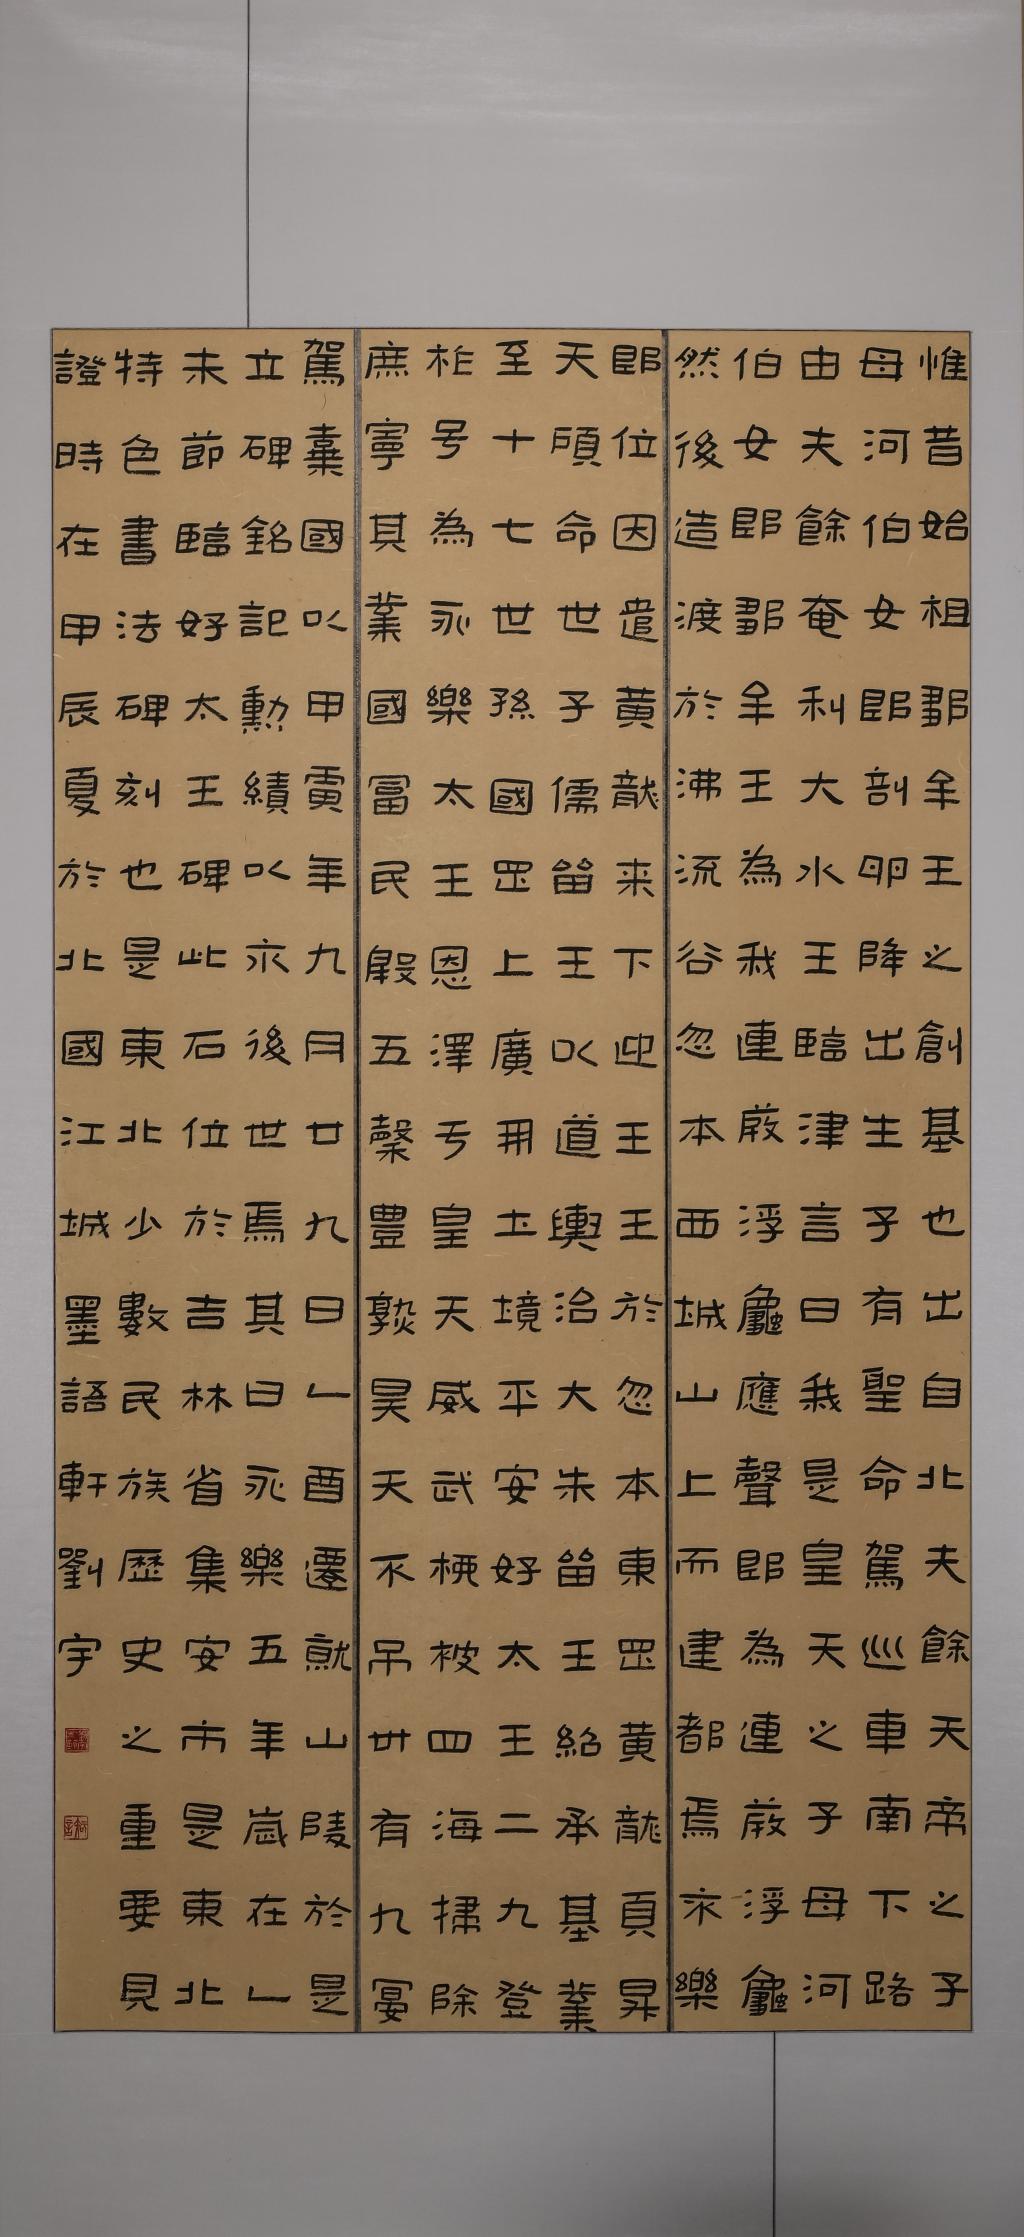 惟昔始祖鄒牟王之創基也出自北夫餘天帝之子
母河伯女郎剖卵降出生子有聖命駕巡車南下路
由夫餘奄利大水王臨津言曰我是皇天之子母河
伯女郎鄒牟王為我連葭浮龜應聲即為連葭浮龜
然後造渡於沸流谷忽本西城山上而建都焉不樂
位因遣黃龍来下迎王王於忽本東罡黃龍頁昇
天顧命世子儒留王以道輿治大朱留王紹承基業
至十七世孫國罡上廣開土境平安好太王二九登
祚号為永樂太王恩澤于皇天威武柳被四海掃除
庶寧其業國富民殷五穀豐熟昊天不弔卅有九宴
駕棄國以甲寅年九月廿九日乙酉遷就山陵於是
立碑銘記勳績以示後世焉其曰永樂五年歲在乙
未節臨好太王碑此石位於吉林省集安市是東北
特色書法碑刻也是東北少數民族歷史之重要見
證時在甲辰夏於北國江城墨語軒劉宇